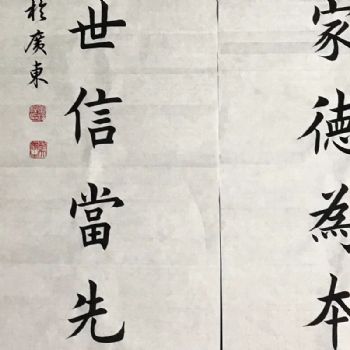 家德為本
世信當先
於廣東